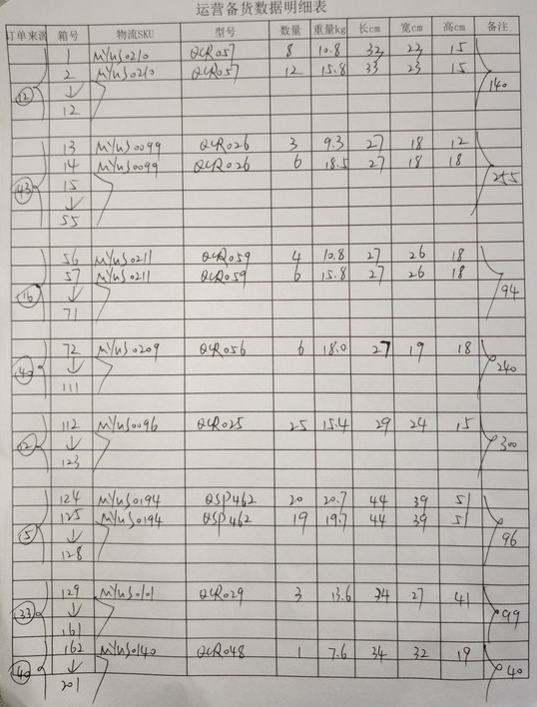 运营备货数据明细表
订单来源 箱号 物流SKU 型号 数量 重量kg 长cm 宽cm 高cm 备注
1 MYUS0210 QCR057 8 10.8 32 23 15
2 MYUS0210 QCR057 12 15.8 33 23 15
⑫ ↓ 140
12
13 MYUS0099 QCR026 3 9.3 27 18 12
14 MYUS0099 QCR026 6 18.5 27 18 18
㊸ 15 255
↓
55
56 MYUS0211 QCR059 4 10.8 27 26 18
57 MYUS0211 QCR059 6 15.8 27 26 18
⑯ ↓ 94
71
72 MYUS0209 QCR056 6 18.0 27 19 18
↓ 240
111
112 MYUS0096 QCR025 25 15.4 29 24 15
↓ 300
123
124 MYUS0194 QSP462 20 20.7 44 39 51
125 MYUS0194 QSP462 19 19.7 44 39 51
⑤ ↓ 96
128
129 MYUS0101 QCR029 3 13.6 34 27 41
㉝ ↓ 99
161
162 MYUS0140 QCR048 1 7.6 34 32 19
㊵ ↓ 40
201